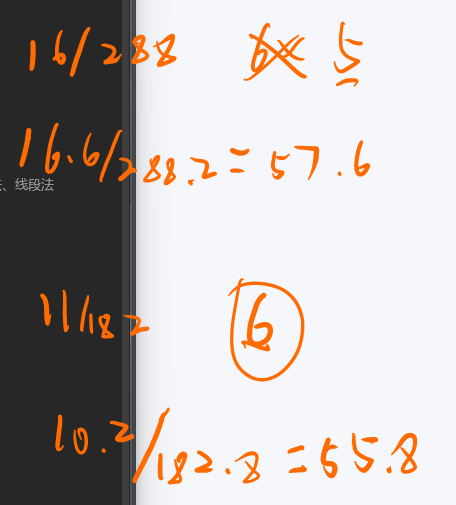 16/288 6 5
16.6/288.2=57.6
、线段法
11/182 6
10.2/182.8=55.8